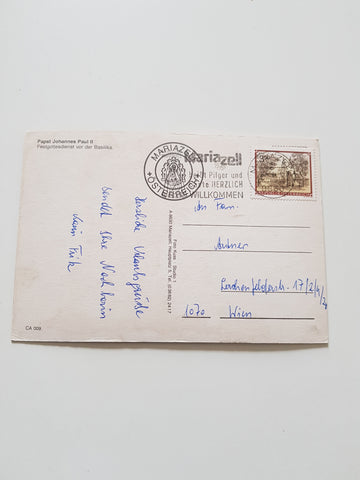 Papst Johannes Paul II.
Festgottesdienst vor der Basilika.
MARIAZELL
ÖSTERREICH
Mariazell
Pilger und
HERZLICH
WILLKOMMEN
Herzliche Urlaubsgrüße
sendet Ihre Nachbarin
Foto Kuss - Studio
A-8630 Mariazell, Hauptplatz 3, Tel. (03882) 24 17
Lerchenfelderstr. 17/2/4/
1070 Wien
CA 009